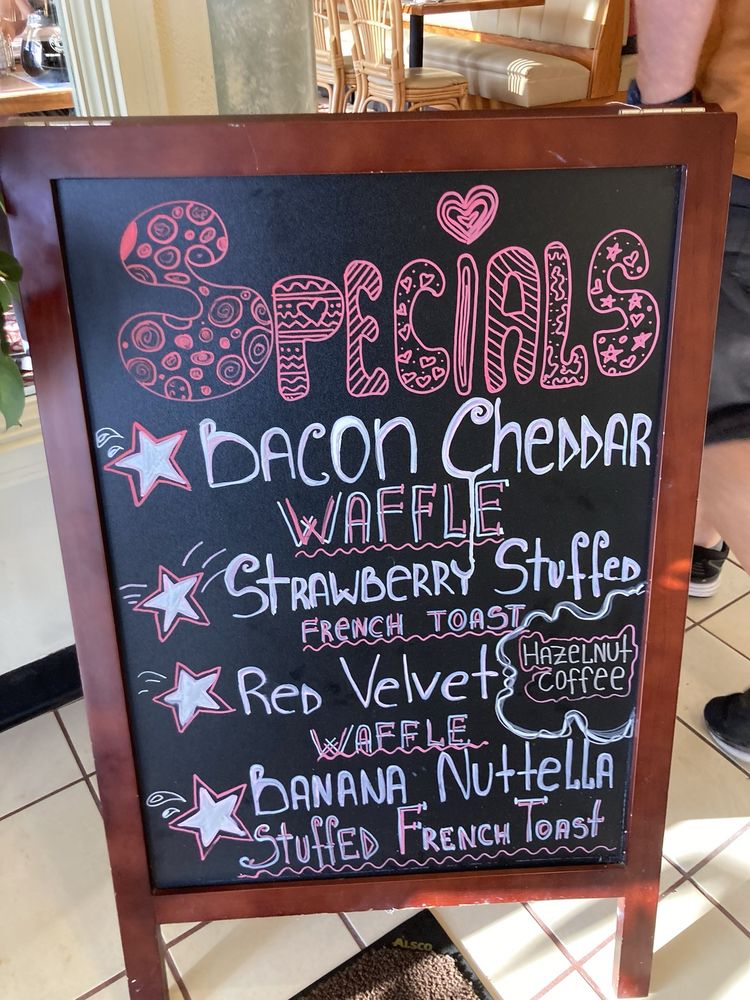 SPECiALS
BACON CheddAR
WAFFLE
STRAWBERRY Stuffed
FRENCH TOAST
HAZELNUT
COFFEE
RED Velvet
WAFFLE
BANANA NuttellA
StuffED FRENCH TOAST
ALSCO